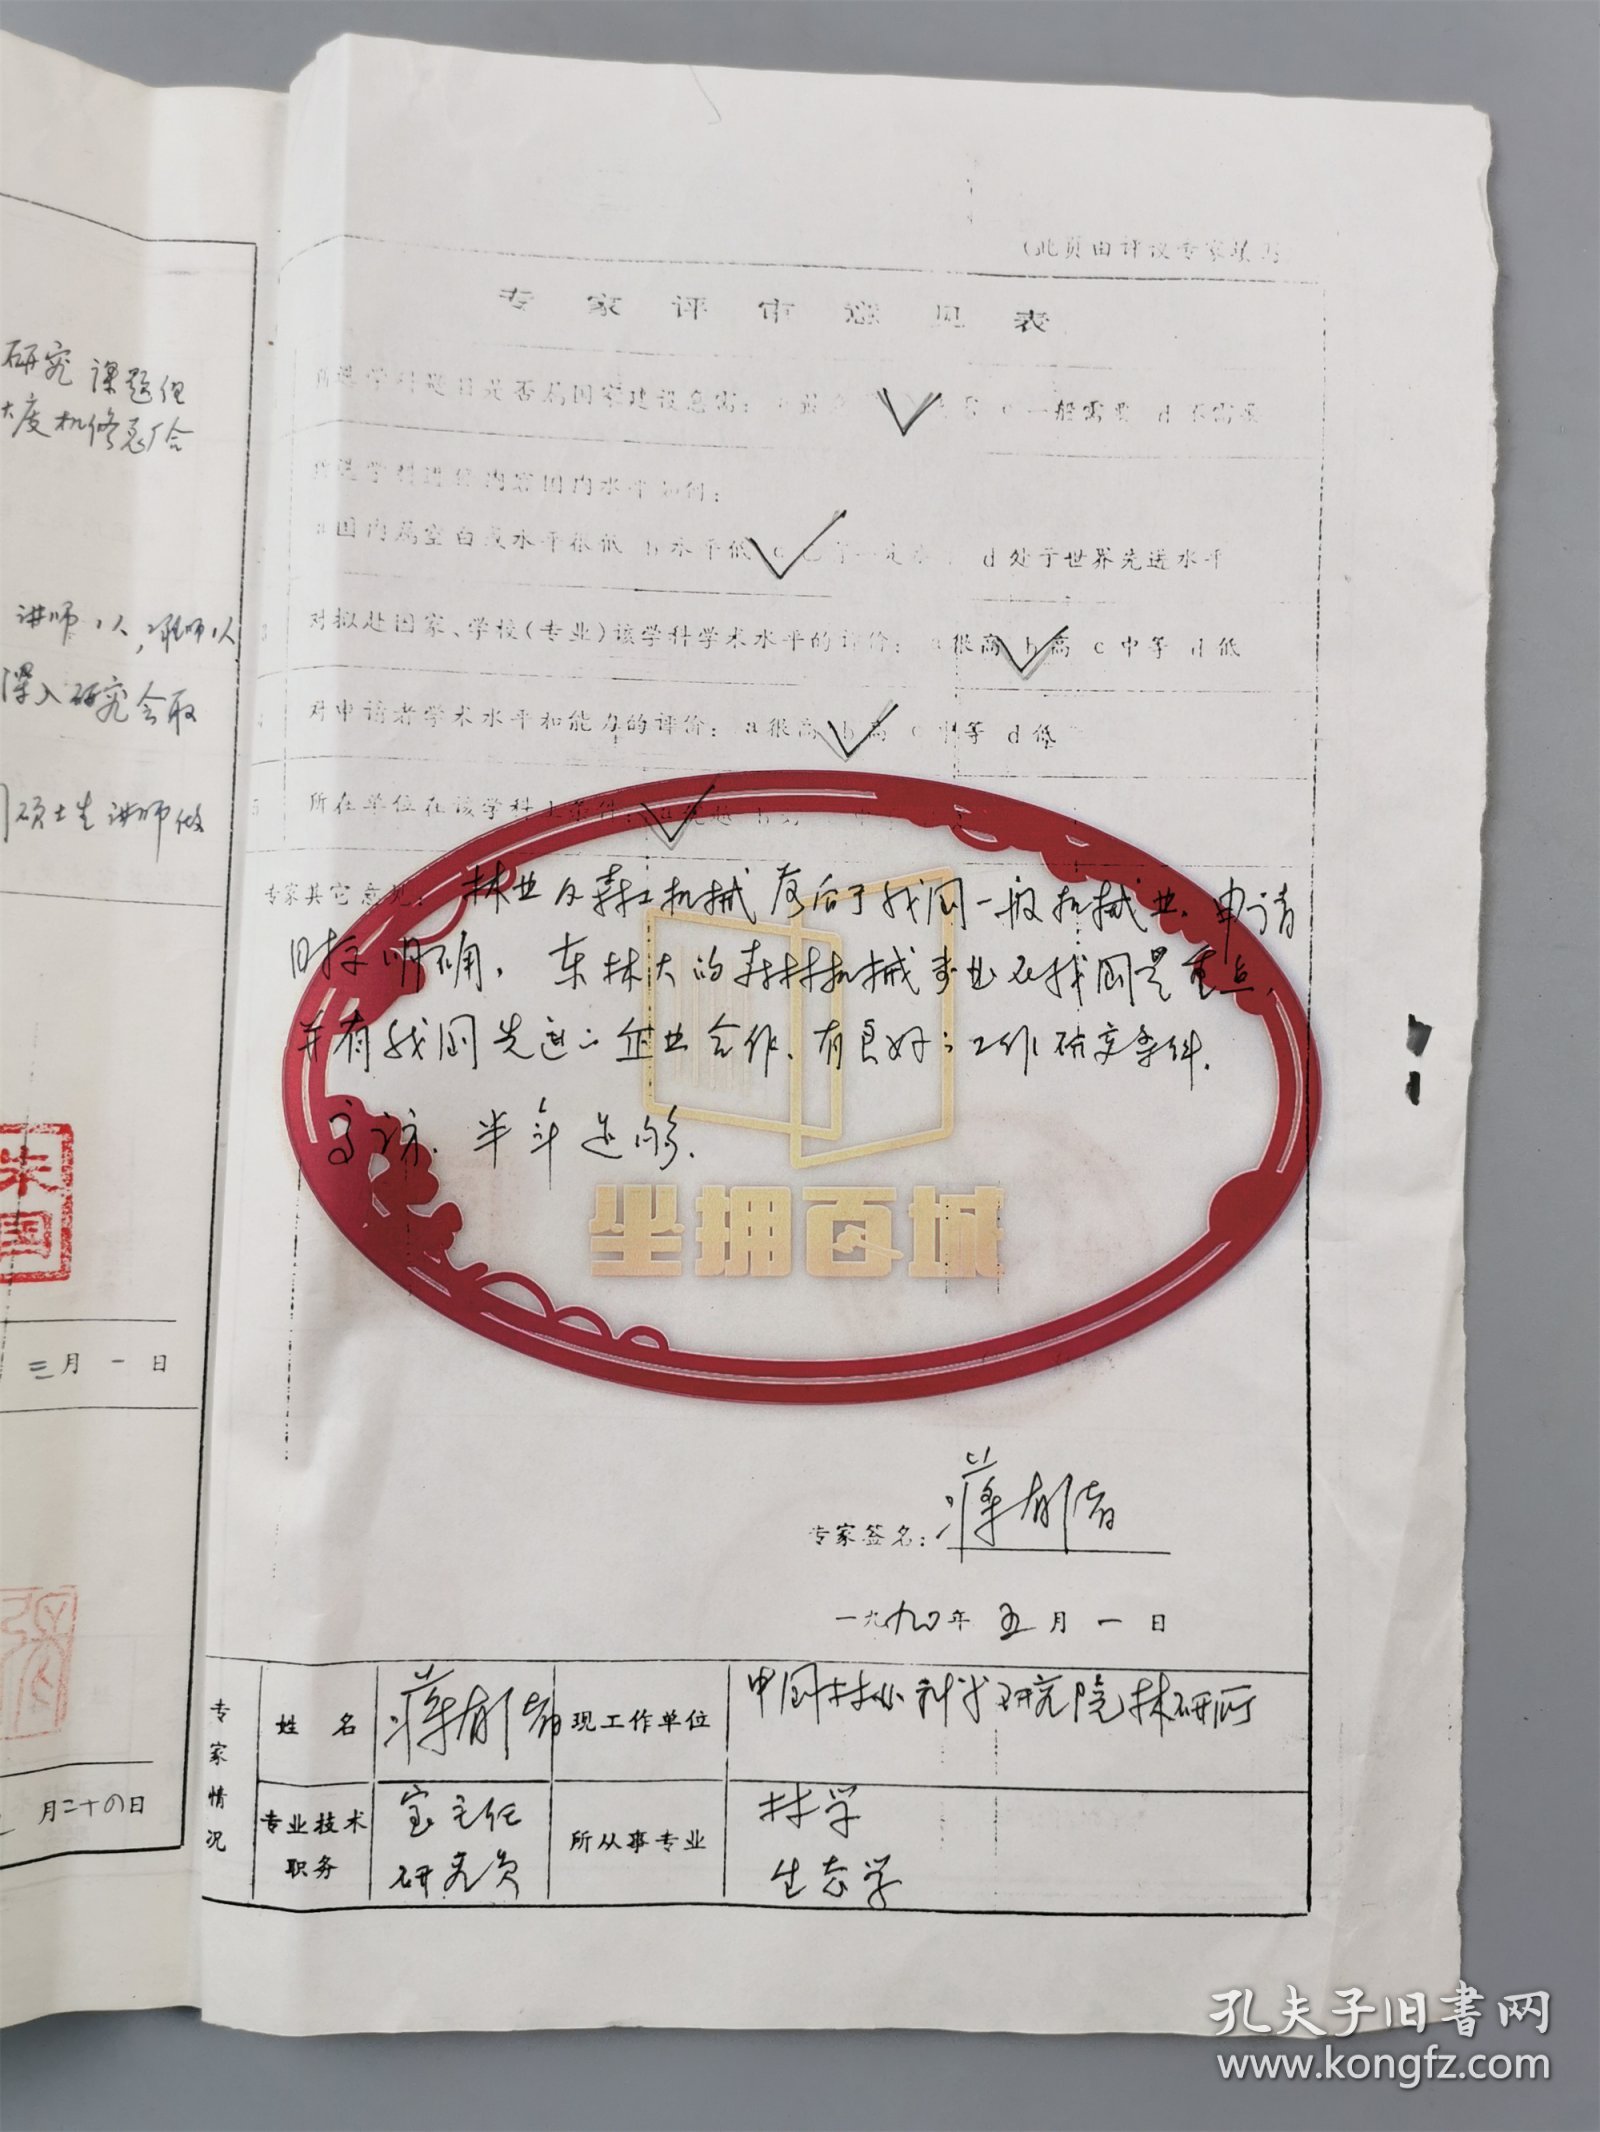 研究课题但
大度机修总厂合
讲师1人,
深入研究会取
硕士生讲师做
朱
国
三月一日
月二十四日
(此页由评议专家填写)
专家评审意见表
所选学科题目是否为国家建设急需: c 一般需要 d 不需要
所选学科进修内容国内水平如何:
a 国内属空白或水平很低 b 水平低 c 已有一定水平 d 处于世界先进水平
3 对拟赴国家、学校(专业)该学科学术水平的评价: a 很高 b 高 c 中等 d 低
4 对申请者学术水平和能力的评价: a 很高 b 高 c 中等 d 低
5 所在单位在该学科上条件: a 优越
专家其它意见: 林业及森工机械落后于我国一般机械业. 申请
目标明确. 东林大的森林机械专业在我国是重点,
并有我国先进的企业合作. 有良好的工作研究条件.
高访. 半年足够.
坐拥百城
专家签名: 蒋有绪
一九九〇年 五月一日
专家情况
姓名 蒋有绪 现工作单位 中国林业科学研究院林研所
专业技术职务 室主任 研究员 所从事专业 林学 生态学
孔夫子旧书网
www.kongfz.com